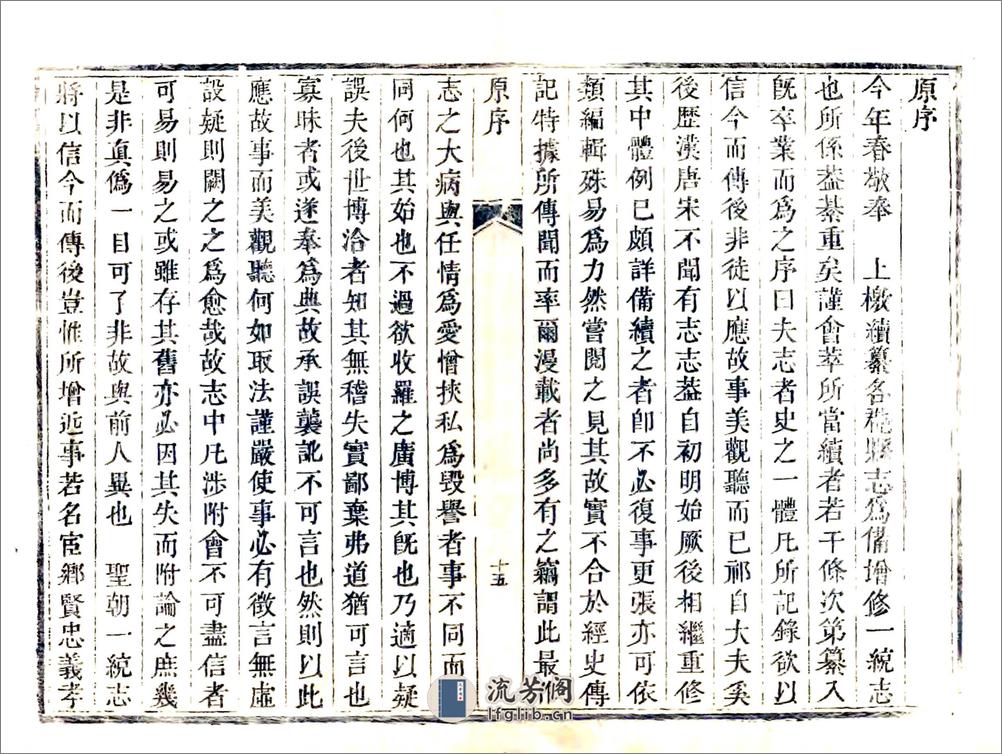 原序
今年春敬奉　上檄續纂各州縣志爲備增修一統志
也所係葢綦重矣謹會萃所當續者若干條次第纂入
旣卒業而爲之序曰夫志者史之一體凡所記錄欲以
信今而傳後非徒以應故事美觀聽而已祁自大夫奚
後歷漢唐宋不聞有志志葢自初明始厥後相繼重修
其中體例已頗詳備續之者卽不必復事更張亦可依
類編輯殊易爲力然嘗閱之見其故實不合於經史傳
記特據所傳聞而率爾漫載者尚多有之竊謂此最
原序
十五
志之大病與任情爲愛憎挾私爲毀譽者事不同而
同何也其始也不過欲收羅之廣博其旣也乃適以疑
誤夫後世博洽者知其無稽失實鄙棄弗道猶可言也
寡昧者或遂奉爲典故承誤襲訛不可言也然則以此
應故事而美觀聽何如取法謹嚴使事必有徵言無虛
設疑則闕之之爲愈哉故志中凡涉附會不可盡信者
可易則易之或雖存其舊亦必因其失而附論之庶幾
是非眞僞一目可了非故與前人異也　聖朝一統志
將以信今而傳後豈惟所增近事若名宦鄉賢忠義孝
流芳阁
lfglib.cn